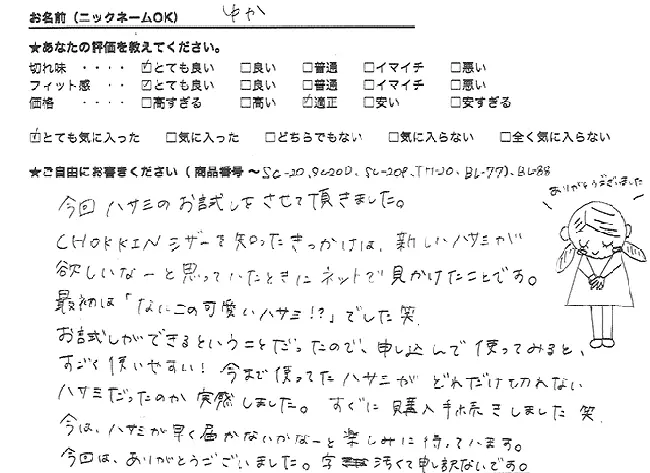 お名前(ニックネームOK) ゆか
★あなたの評価を教えてください。
切れ味 ・・・・ ☑とても良い □良い □普通 □イマイチ □悪い
フィット感 ・・ ☑とても良い □良い □普通 □イマイチ □悪い
価格 ・・・・ □高すぎる □高い ☑適正 □安い □安すぎる
☑とても気に入った □気に入った □どちらでもない □気に入らない □全く気に入らない
★ご自由にお書きください(商品番号〜SC-20,SC-20D、SC-20P、TH-20、BL-77)、BL-88
ありがとうございました
今回ハサミのお試しをさせて頂きました。
CHOKKINシザーを知ったきっかけは、新しいハサミが
欲しいなーと思っていたときにネットで見かけたことです。
最初は「なにこの可愛いハサミ!?」でした笑
お試しができるということだったので、申し込んで使ってみると、
すごく使いやすい!今まで使ってたハサミがどれだけ切れない
ハサミだったのか実感しました。すぐに購入手続きしました笑
今は、ハサミが早く届かないかなーと楽しみに待ってます。
今回は、ありがとうございました。字汚くて申し訳ないです。